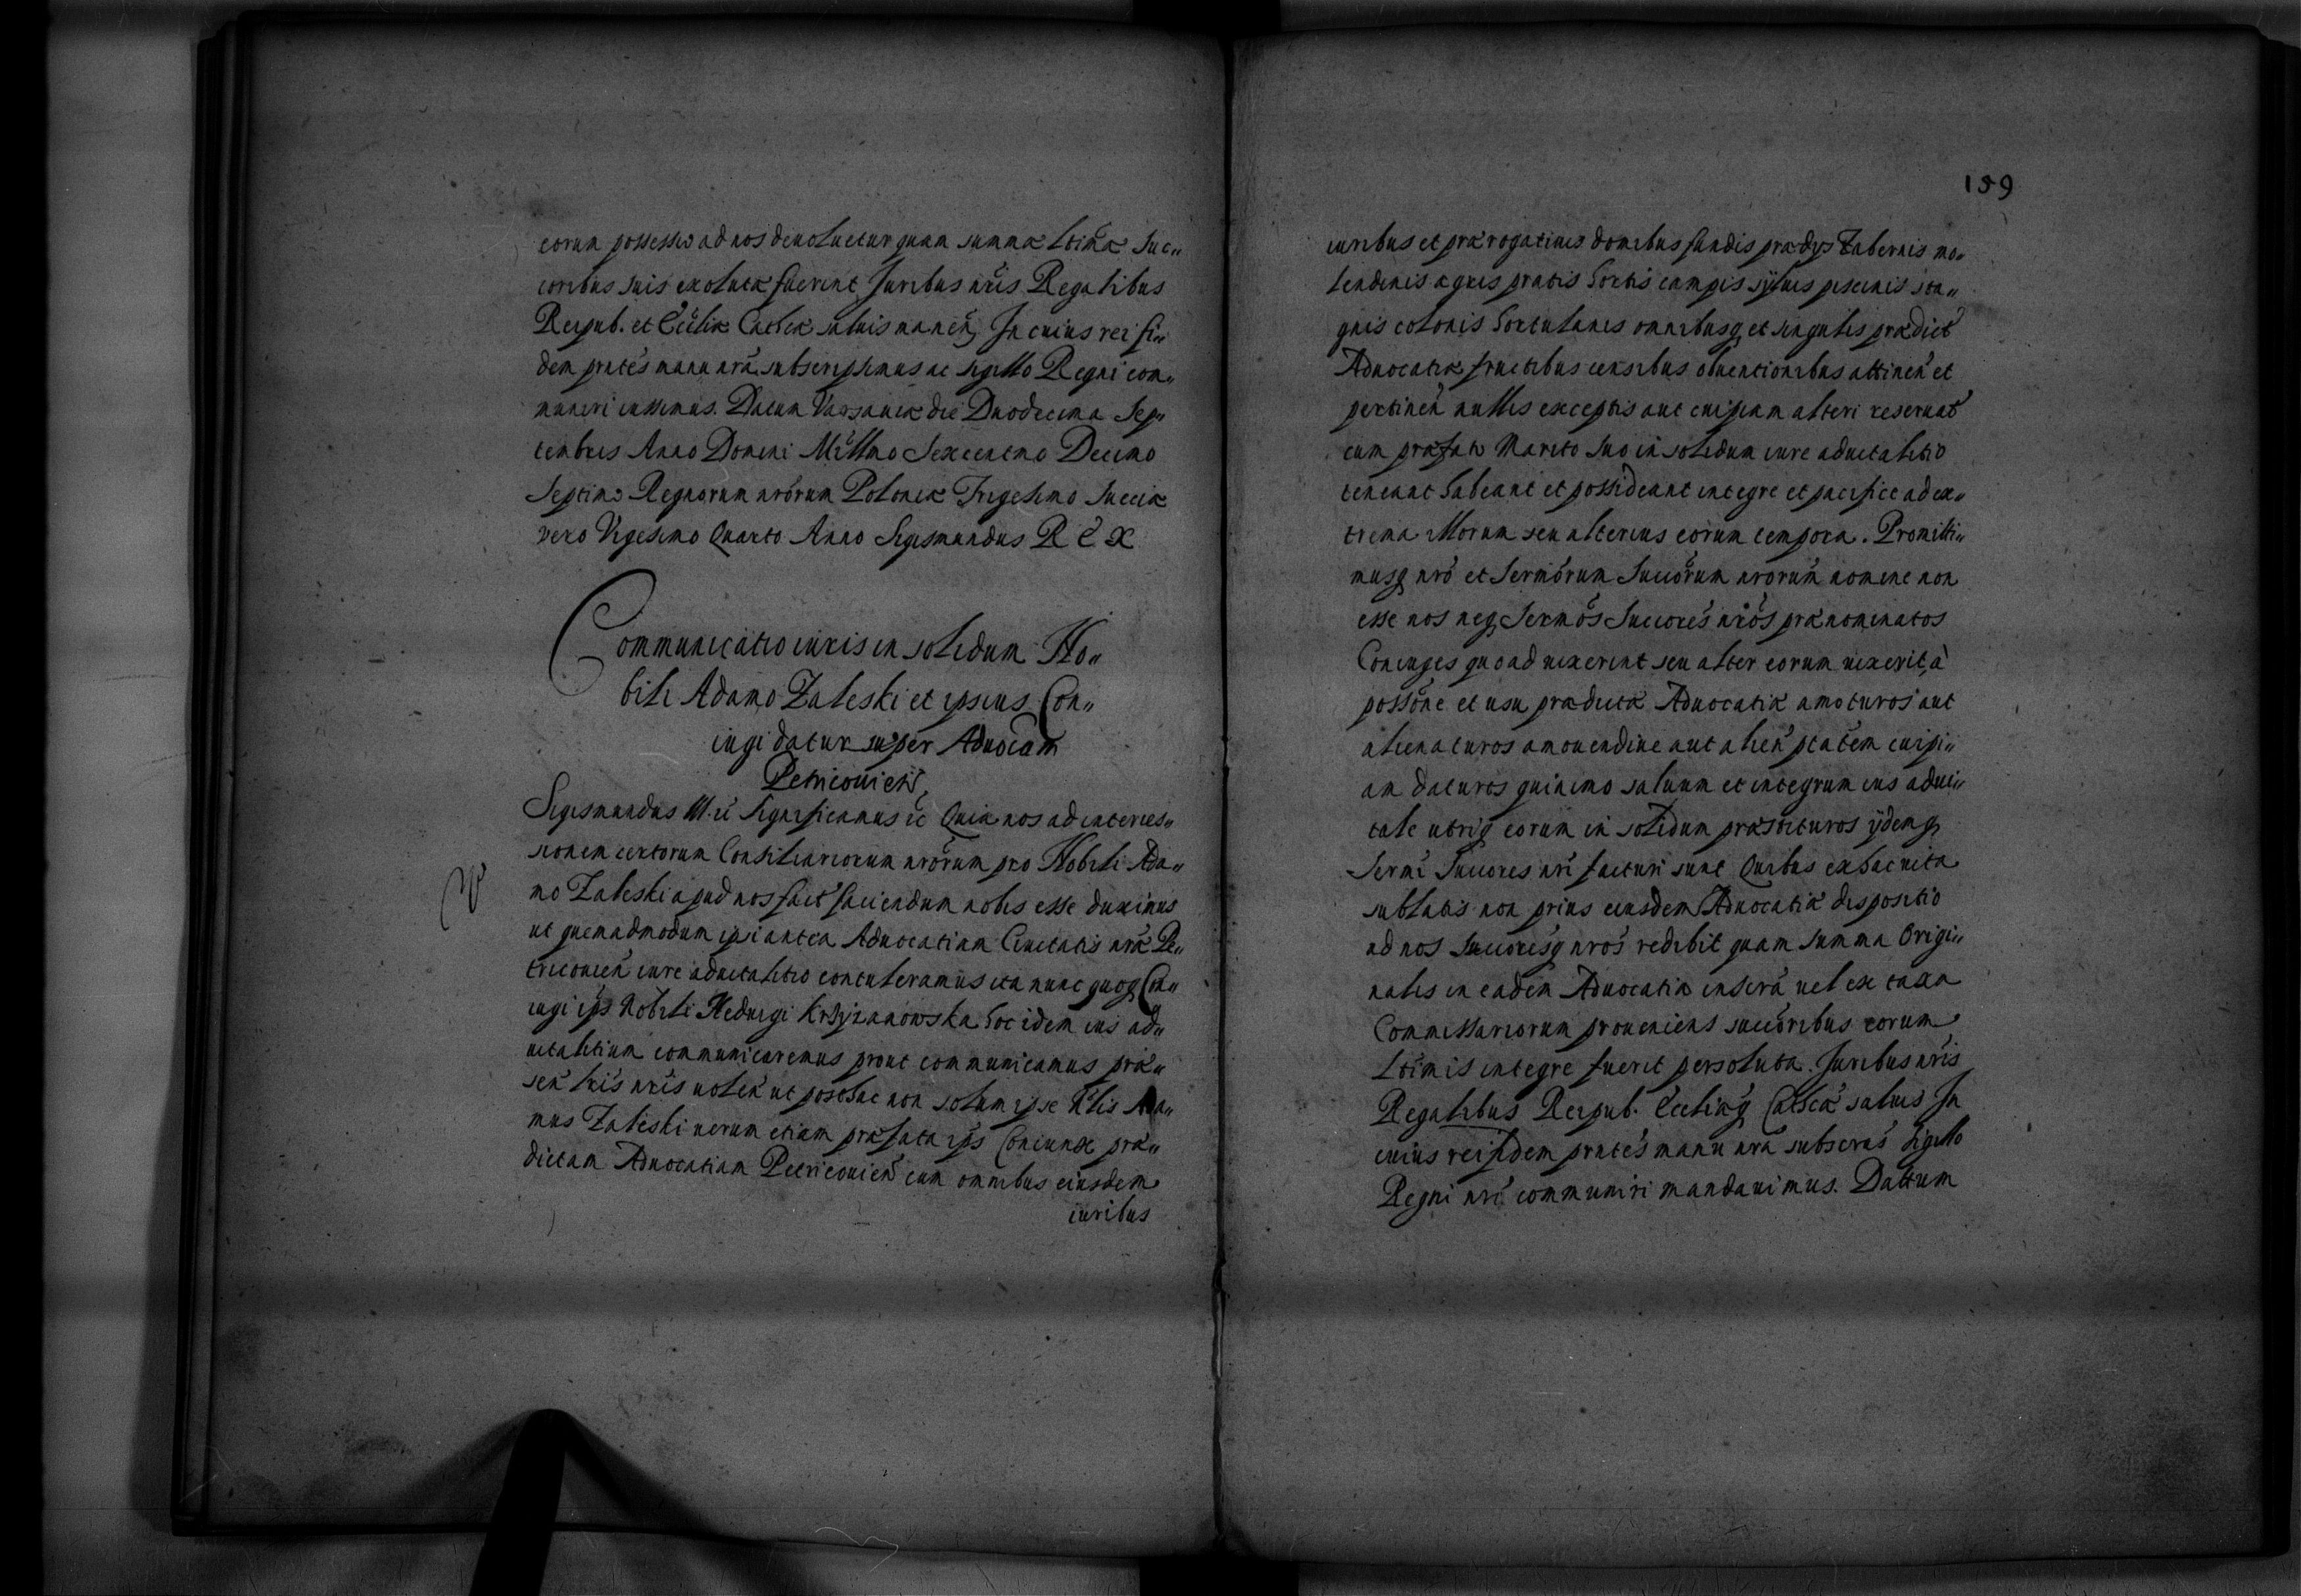 eorum possessio ad nos deuoluetur quam summa ltima Suc„
coribus suis exoluta fuerint Juribus nris Regalibus
Reipub. et Ecclia Cathca saluis manen, In cuius rei fi„
dem pntes manu nra subscripsimus ac sigillo Regni com„
muniri iussimus. Datum Varsauiæ die Duodecima Sep„
tembris Anno Domini Millmo Sexcentmo Decimo
Septimo Regnorum nrorum Poloniæ Trigesimo Sueciæ
vero Vigesimo Quarto Anno Sigismundus R E X
Communicatio iuris in solidum No„
bili Adamo Zaleski et ipsius Con„
iugi datur super Aduocam
Petricouien,
Sigismundus III. &c Significamus &c Quia nos ad interces„
sionem certorum Consiliariorum nrorum pro Nobili Ada„
mo Zaleski apud nos fact faciendum nobis esse duximus
ut quemadmodum ipsi antea Aduocatiam Ciuitatis nræ Pe„
tricouien iure aduitalitio contuleramus ita nunc quoq Con„
iugi ips Nobili Heduigi Krzyzanowska hoc idem ius ad„
uitalitium communicaremus prout communicamus præ„
sen lris nris uolen ut posthac non solum ipse Nlis Ada„
mus Zaleski uerum etiam præfata ips Coniunx præ„
dictam Aduocatiam Petricouien cum omnibus eiusdem
iuribus
159
iuribus et prærogatiuis domibus fundis prædys Tabernis mo„
lendinis agris pratis hortis campis syluis piscinis sta„
gnis colonis hortulanis omnibusq et singulis prædict
Aduocatiæ fructibus censibus obuentionibus attinen et
pertinen nullis exceptis aut cuipiam alteri reseruat
cum præfato Marito suo in solidum iure aduitalitio
teneant habeant et possideant integre et pacifice ad ex„
trema illorum seu alterius eorum tempora. Promitti„
musq nro et Sermorum Succorum nrorum nomine non
esse nos neq Sermos Succores nros prænominatos
Coniuges quoad uixerint seu alter eorum uixerit, à
possone et usu prædictæ Aduocatiæ amoturos aut
alienaturos amouendiue aut alien ptatem cuipi„
am daturos quinimo saluum et integrum ius aduí„
tale utriq eorum in solidum præstituros ijdemq
Sermi Succores nri facturi sunt Quibus ex hac uita
sublatis non prius eiusdem Aduocatiæ dispositio
ad nos succoresq nros redibit quam summa Origi„
nalis in eadem Aduocatia inscra uel ex taxa
Commissariorum proueniens succoribus eorum
ltimis integre fuerit persoluta. Juribus nris
Regalibus Reipub. Ecclieq Cathcæ saluis In
cuius rei fidem pntes manu nra subscras Sigillo
Regni nri communiri mandauimus. Dattum